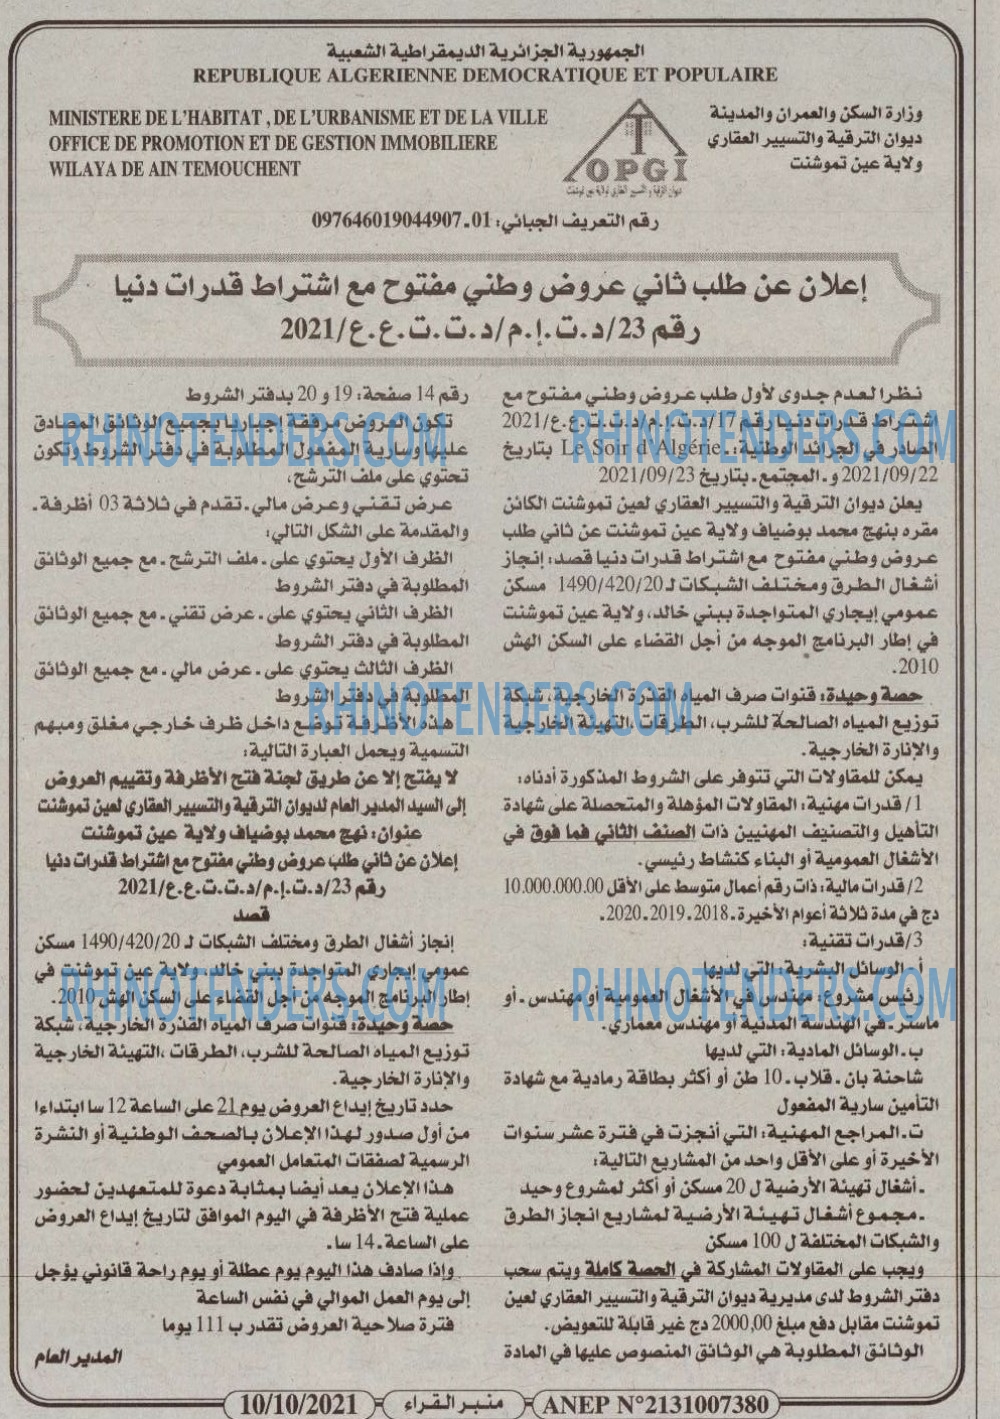 الجمهورية الجزائرية الديمقراطية الشعبية
REPUBLIQUE ALGERIENNE DEMOCRATIQUE ET POPULAIRE
MINISTERE DE L'HABITAT , DE L'URBANISME ET DE LA VILLE
OFFICE DE PROMOTION ET DE GESTION IMMOBILIERE
WILAYA DE AIN TEMOUCHENT
OPGI
ديوان الترقية و التسيير العقاري لولاية عين تموشنت
وزارة السكن والعمران والمدينة
ديوان الترقية والتسيير العقاري
ولاية عين تموشنت
رقم التعريف الجبائي: 01-097646019044907
إعلان عن طلب ثاني عروض وطني مفتوح مع اشتراط قدرات دنيا
رقم 23/د.ت.إ.م/د.ت.ت.ع.ع/2021
نظرا لعدم جدوى لأول طلب عروض وطني مفتوح مع
اشتراط قدرات دنيا رقم 17/د.ت.إ.م/د.ت.ت.ع.ع/2021
الصادر في الجرائد الوطنية: ـ Le Soir d'Algérie بتاريخ
2021/09/22 و ـ المجتمع ـ بتاريخ 2021/09/23
يعلن ديوان الترقية والتسيير العقاري لعين تموشنت الكائن
مقره بنهج محمد بوضياف ولاية عين تموشنت عن ثاني طلب
عروض وطني مفتوح مع اشتراط قدرات دنيا قصد: إنجاز
أشغال الطرق ومختلف الشبكات لـ 1490/420/20 مسكن
عمومي إيجاري المتواجدة ببني خالد، ولاية عين تموشنت
في إطار البرنامج الموجه من أجل القضاء على السكن الهش
2010.
حصة وحيدة: قنوات صرف المياه القذرة الخارجية، شبكة
توزيع المياه الصالحة للشرب، الطرقات ،التهيئة الخارجية
والإنارة الخارجية.
يمكن للمقاولات التي تتوفر على الشروط المذكورة أدناه:
1/ قدرات مهنية: المقاولات المؤهلة والمتحصلة على شهادة
التأهيل والتصنيف المهنيين ذات الصنف الثاني فما فوق في
الأشغال العمومية أو البناء كنشاط رئيسي.
2/ قدرات مالية: ذات رقم أعمال متوسط على الأقل 10.000.000.00
دج في مدة ثلاثة أعوام الأخيرة ـ 2018 ـ 2019 ـ 2020.
3/قدرات تقنية:
أ ـ الوسائل البشرية: التي لديها
رئيس مشروع: مهندس في الأشغال العمومية أو مهندس ـ أو
ماستر ـ في الهندسة المدنية أو مهندس معماري.
ب ـ الوسائل المادية: التي لديها
شاحنة بان ـ قلاب ـ 10 طن أو أكثر بطاقة رمادية مع شهادة
التأمين سارية المفعول
ت ـ المراجع المهنية: التي أنجزت في فترة عشر سنوات
الأخيرة أو على الأقل واحد من المشاريع التالية:
ـ أشغال تهيئة الأرضية ل 20 مسكن أو أكثر لمشروع وحيد
ـ مجموع أشغال تهيئة الأرضية لمشاريع انجاز الطرق
والشبكات المختلفة ل 100 مسكن
ويجب على المقاولات المشاركة في الحصة كاملة ويتم سحب
دفتر الشروط لدى مديرية ديوان الترقية والتسيير العقاري لعين
تموشنت مقابل دفع مبلغ 2000,00 دج غير قابلة للتعويض.
الوثائق المطلوبة هي الوثائق المنصوص عليها في المادة
رقم 14 صفحة: 19 و 20 بدفتر الشروط
تكون العروض مرفقة إجباريا بجميع الوثائق المصادق
عليها وسارية المفعول المطلوبة في دفتر الشروط وتكون
تحتوي على ملف الترشح،
عرض تقني وعرض مالي ـ تقدم في ثلاثة 03 أظرفة ـ
والمقدمة على الشكل التالي:
الظرف الأول يحتوي على ـ ملف الترشح ـ مع جميع الوثائق
المطلوبة في دفتر الشروط
الظرف الثاني يحتوي على ـ عرض تقني ـ مع جميع الوثائق
المطلوبة في دفتر الشروط
الظرف الثالث يحتوي على ـ عرض مالي ـ مع جميع الوثائق
المطلوبة في دفتر الشروط
هذه الأظرفة توضع داخل ظرف خارجي مغلق ومبهم
التسمية ويحمل العبارة التالية:
لا يفتح إلا عن طريق لجنة فتح الأظرفة وتقييم العروض
إلى السيد المدير العام لديوان الترقية والتسيير العقاري لعين تموشنت
عنوان: نهج محمد بوضياف ولاية عين تموشنت
إعلان عن ثاني طلب عروض وطني مفتوح مع اشتراط قدرات دنيا
رقم 23/د.ت.إ.م/د.ت.ت.ع.ع/2021
قصد
إنجاز أشغال الطرق ومختلف الشبكات لـ 1490/420/20 مسكن
عمومي إيجاري المتواجدة ببني خالد، ولاية عين تموشنت في
إطار البرنامج الموجه من أجل القضاء على السكن الهش 2010.
حصة وحيدة: قنوات صرف المياه القذرة الخارجية، شبكة
توزيع المياه الصالحة للشرب، الطرقات ،التهيئة الخارجية
والإنارة الخارجية.
حدد تاريخ إيداع العروض يوم 21 على الساعة 12 سا ابتداءا
من أول صدور لهذا الإعلان بالصحف الوطنية أو النشرة
الرسمية لصفقات المتعامل العمومي
هذا الإعلان يعد أيضا بمثابة دعوة للمتعهدين لحضور
عملية فتح الأظرفة في اليوم الموافق لتاريخ إيداع العروض
على الساعة ـ 14 سا.
وإذا صادف هذا اليوم يوم عطلة أو يوم راحة قانوني يؤجل
إلى يوم العمل الموالي في نفس الساعة
فترة صلاحية العروض تقدر ب 111 يوما
المدير العام
RHINOTENDERS.COM
RHINOTENDERS.COM
RHINOTENDERS.COM
RHINOTENDERS.COM
RHINOTENDERS.COM
10/10/2021
منبر القراء
ANEP N°2131007380